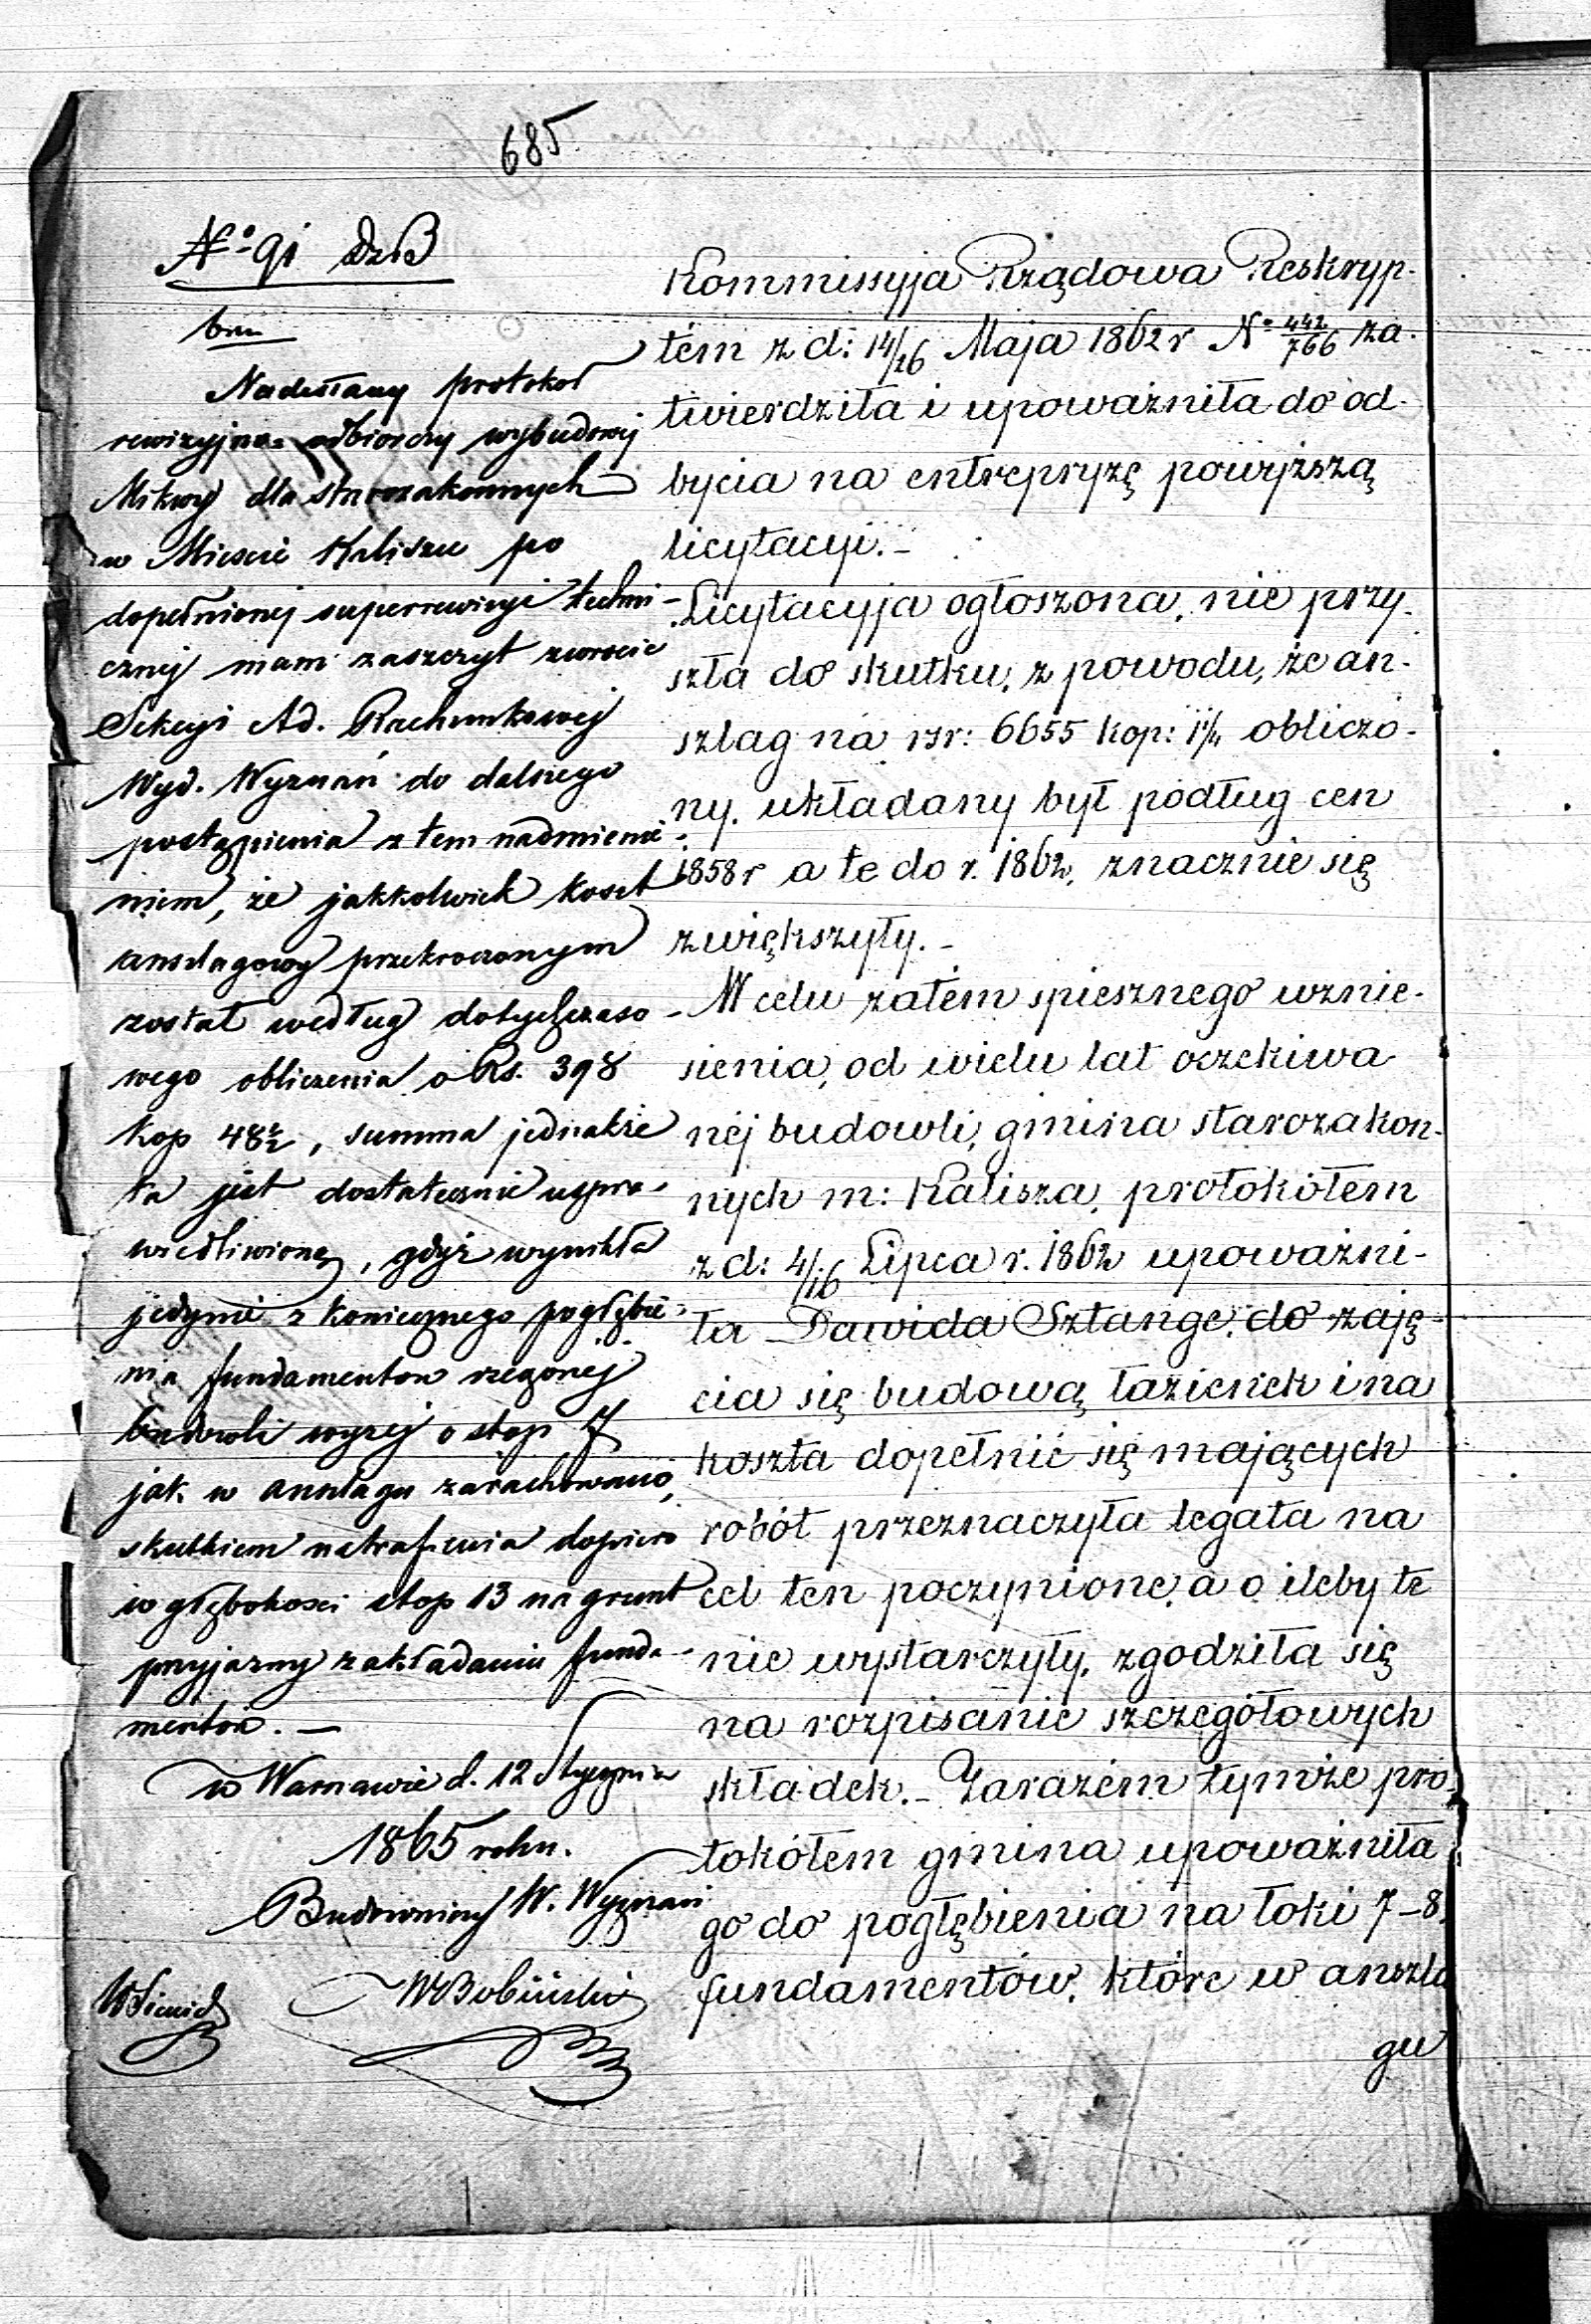 685.
No 91 DzB
bm
Nadesłany protokół
rewizyjno-odbiorczy wybudowj
Mikwy dla starozakonnych
w Mieście Kaliszu po
dopełnionej superrewizyi techni-
cznej mam zaszczyt zwrocić
Sekcyi Ad. Rachunkowej
Wyd. Wyznań do dalszego
postąpienia z tem nadmienie-
niem, że jakkolwiek koszt
anszlagowy przekroczonym
został według dotychczaso-
wego obliczenia o Rs. 398
kop 48½, summa jednakże
ta jest dostatecznie uspra-
wiedliwioną, gdyż wynikła
jedynie z koniecznego pogłębie-
nia fundamentow rzeczonej
budowli wyzej o stop 7
jak w anszlagu zarachowano,
skutkiem natrafienia dopiero
w głębokosci stop 13 na grunt
przyjazny zakładaniu funda-
mentów. —
w Warszawie d. 12 Stycznia
1865 roku.
Budowniczy W. Wyznań
WBobiński
Kommissyja Rządowa Reskryp-
tém z d: 14/26 Maja 1862 r No 442/766 za-
twierdziła i upoważniła do od-
bycia na entrepryzę powyższą
licytacyi.-
Licytacyja ogłoszona, nie przy-
szła do skutku, z powodu, że an-
szlag na rsr: 6655 kop: 1¼ obliczo-
ny, układany był podług cen
1858 r a te do r. 1862, znacznie się
zwiększyły.-
W celu zatém spiesznego wznie-
sienia, od wielu lat oczekiwa
néj budowli, gmina starozakon-
nych m: Kalisza, protokółem
z d: 4/16 Lipca r. 1862 upoważni-
ła Dawida Sztange, do zaję-
cia się budową łazienek i na
koszta dopełnić się mających
robót przeznaczyła legata na
cel ten poczynione, a o ileby te
nie wystarczyły, zgodziła się
na rozpisanie szczegółowych
składek.- Zarazém tymże pro-
tokółem gmina upoważniła
go do pogłębienia na łoki 7-8.
fundamentów, które w anszla
gu